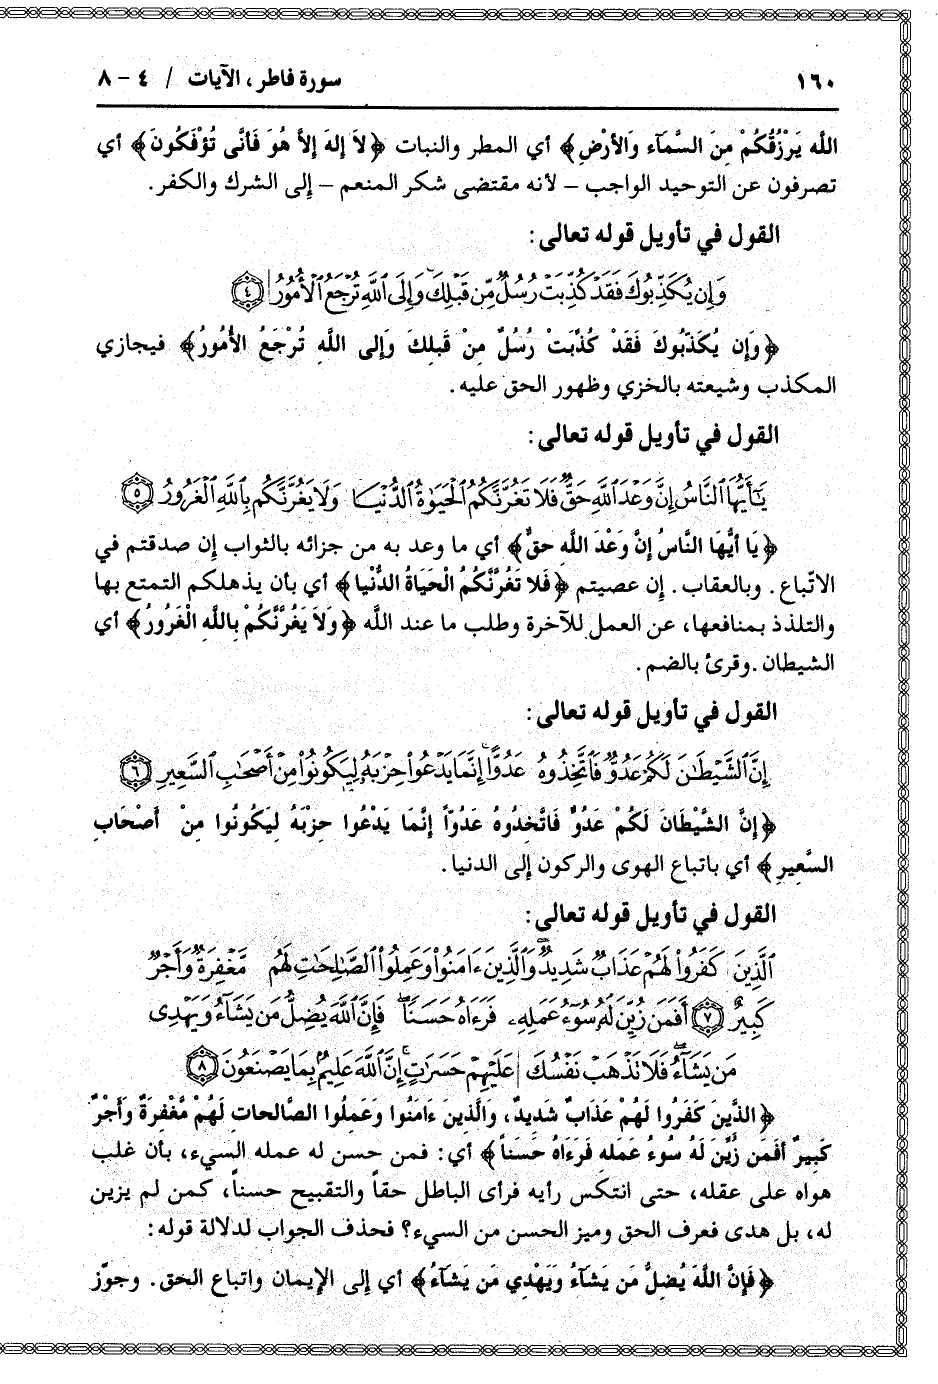 ١٦٠
سورة فاطر، الآيات / ٤ - ٨
اللَّه يَرْزُقُكُمْ مِنَ السَّمَآءِ وَالأَرْضِ﴾ أي المطر والنبات ﴿لاَ إِلهَ إِلاَّ هُوَ فَأَنَّى تُؤْفَكُونَ﴾ أي
تصرفون عن التوحيد الواجب – لأنه مقتضى شكر المنعم – إلى الشرك والكفر.
القول في تأويل قوله تعالى:
وَإِن يُكَذِّبُوكَ فَقَدْ كُذِّبَتْ رُسُلٌ مِّن قَبْلِكَ وَإِلَى ٱللَّهِ تُرْجَعُ ٱلْأُمُورُ ٤
﴿وَإِن يُكَذِّبُوكَ فَقَدْ كُذِّبَتْ رُسُلٌ مِنْ قَبْلِكَ وَإِلى اللَّهِ تُرْجَعُ الأُمُورُ﴾ فيجازي
المكذب وشيعته بالخزي وظهور الحق عليه.
القول في تأويل قوله تعالى:
يَٰٓأَيُّهَا ٱلنَّاسُ إِنَّ وَعْدَ ٱللَّهِ حَقٌّ فَلَا تَغُرَّنَّكُمُ ٱلْحَيَوٰةُ ٱلدُّنْيَا وَلَا يَغُرَّنَّكُم بِٱللَّهِ ٱلْغَرُورُ ٥
﴿يَا أَيُّهَا النَّاسُ إِنَّ وَعْدَ اللَّهِ حقٌّ﴾ أي ما وعد به من جزائه بالثواب إن صدقتم في
الاتّباع. وبالعقاب. إن عصيتم ﴿فَلا تَغُرَّنَّكُمُ الْحَيَاةُ الدُّنْيا﴾ أي بأن يذهلكم التمتع بها
والتلذذ بمنافعها، عن العمل للآخرة وطلب ما عند اللَّه ﴿وَلاَ يَغُرَّنَّكُمْ بِاللَّهِ الْغَرُورُ﴾ أي
الشيطان .وقرئ بالضم.
القول في تأويل قوله تعالى:
إِنَّ ٱلشَّيْطَٰنَ لَكُمْ عَدُوٌّ فَٱتَّخِذُوهُ عَدُوًّا إِنَّمَا يَدْعُوا۟ حِزْبَهُۥ لِيَكُونُوا۟ مِنْ أَصْحَٰبِ ٱلسَّعِيرِ ٦
﴿إِنَّ الشَّيْطَانَ لَكُمْ عَدُوٌّ فَاتَّخِذُوهُ عَدُوّاً إِنَّمَا يَدْعُوا حِزْبَهُ لِيَكُونُوا مِنْ أَصْحَابِ
السَّعِيرِ﴾ أي باتباع الهوى والركون إلى الدنيا.
القول في تأويل قوله تعالى:
ٱلَّذِينَ كَفَرُوا۟ لَهُمْ عَذَابٌ شَدِيدٌ وَٱلَّذِينَ ءَامَنُوا۟ وَعَمِلُوا۟ ٱلصَّٰلِحَٰتِ لَهُم مَّغْفِرَةٌ وَأَجْرٌ
كَبِيرٌ ٧ أَفَمَن زُيِّنَ لَهُۥ سُوٓءُ عَمَلِهِۦ فَرَءَاهُ حَسَنًا فَإِنَّ ٱللَّهَ يُضِلُّ مَن يَشَآءُ وَيَهْدِى
مَن يَشَآءُ فَلَا تَذْهَبْ نَفْسُكَ عَلَيْهِمْ حَسَرَٰتٍ إِنَّ ٱللَّهَ عَلِيمٌۢ بِمَا يَصْنَعُونَ ٨
﴿الذَّينَ كَفَرُوا لَهُمْ عَذَابٌ شَدِيدٌ، وَالَّذينَ ءَامَنُوا وَعَمِلُوا الصَّالِحاتِ لَهُمْ مَّغْفِرَةٌ وَأَجْرٌ
كَبِيرٌ أَفَمَن زُيِّنَ لَهُ سُوءُ عَمَلِهِ فَرَءَاهُ حَسَناً﴾ أي: فمن حسن له عمله السيء، بأن غلب
هواه على عقله، حتى انتكس رأيه فرأى الباطل حقاً والتقبيح حسناً، كمن لم يزين
له، بل هدى فعرف الحق وميز الحسن من السيء؟ فحذف الجواب لدلالة قوله:
﴿فَإِنَّ اللَّهَ يُضِلُّ مَن يَشَآءُ وَيَهْدِي مَن يَشَآءُ﴾ أي إلى الإيمان واتباع الحق. وجوّز